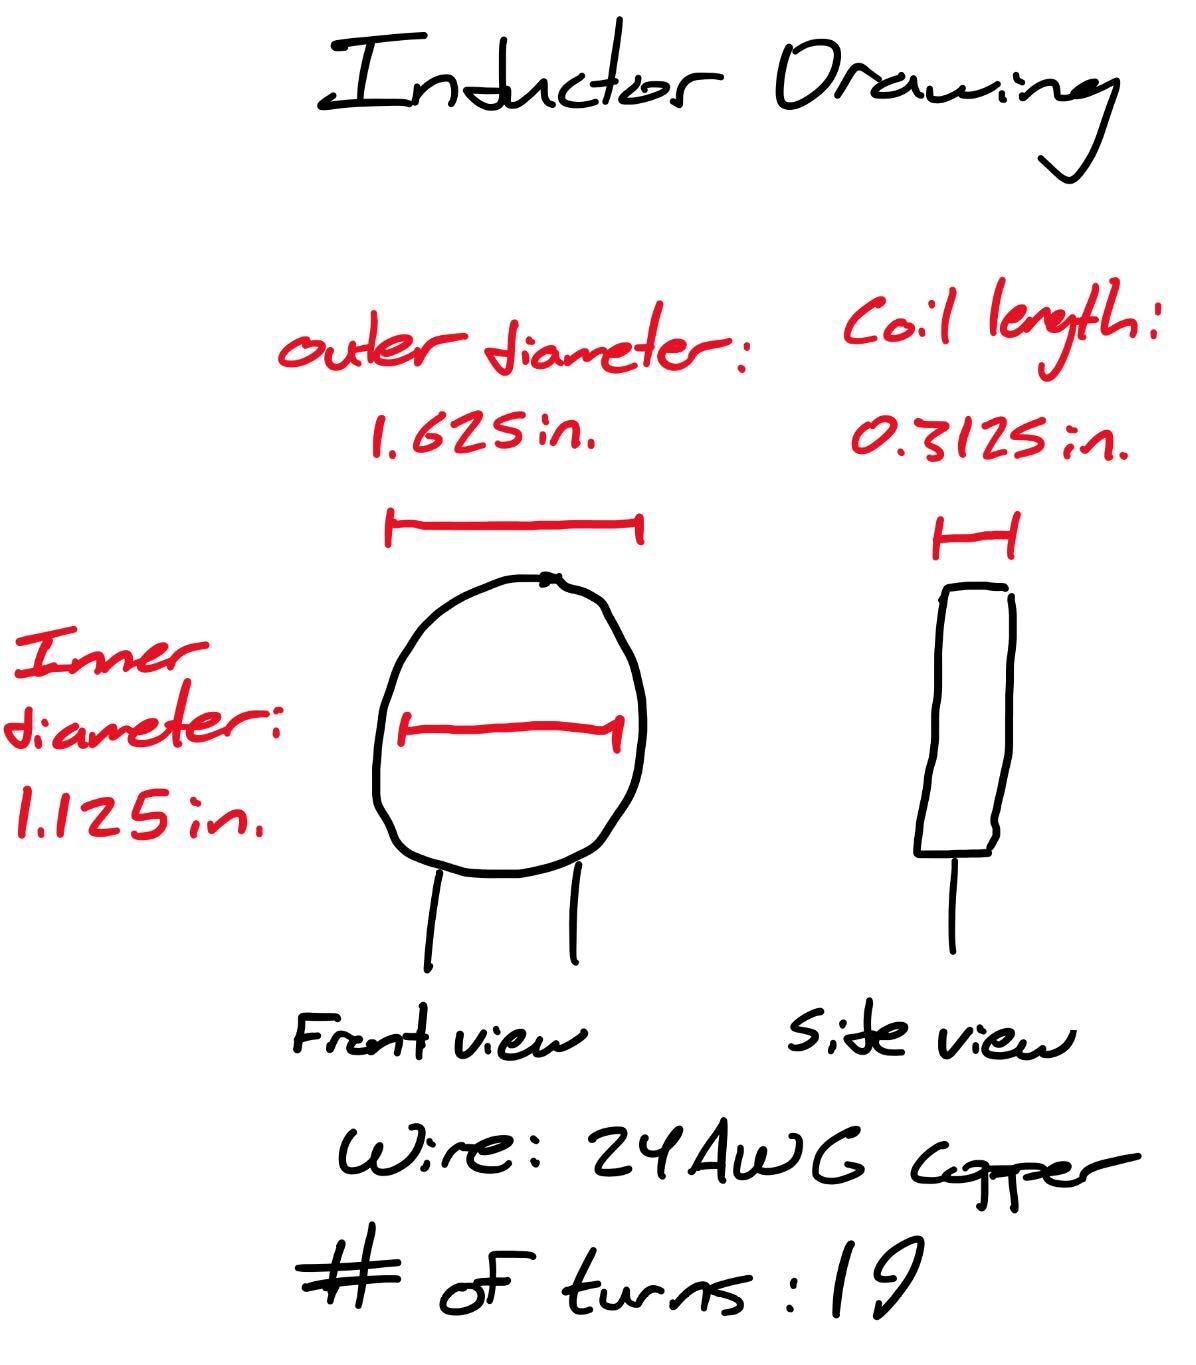 Inductor Drawing
outer diameter:
1.625 in.
Coil length:
0.3125 in.
Inner
diameter:
1.125 in.
Front view
Side view
Wire: 24 AWG Copper
# of turns: 19